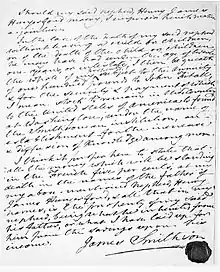 Should my said nephew, Henry James
Hungerford, marry,
In the case of the death of my said nephew
without leaving a child or children,
or of the death of the child or children
he may have had under the age of twenty
one years or intestate, I then bequeath
the whole of my property
of one hundred pounds to John Fitall
& for the security & payment of this
Stock to remain in this Country
to the United States of America, to found
at Washington, under the name of
the Smithsonian Institution, an
establishment for the increase &
diffusion of Knowledge among men.
I think it proper here to state that
all the money which will be standing
in the French five per cents, at my
death in the names of the father of
my above mentioned nephew, Henry
James Hungerford, & all that in my
name, is the property of my said
nephew, being what he inherited from
his father, or what I have laid up for
him from the savings upon his
income.
James Smithson